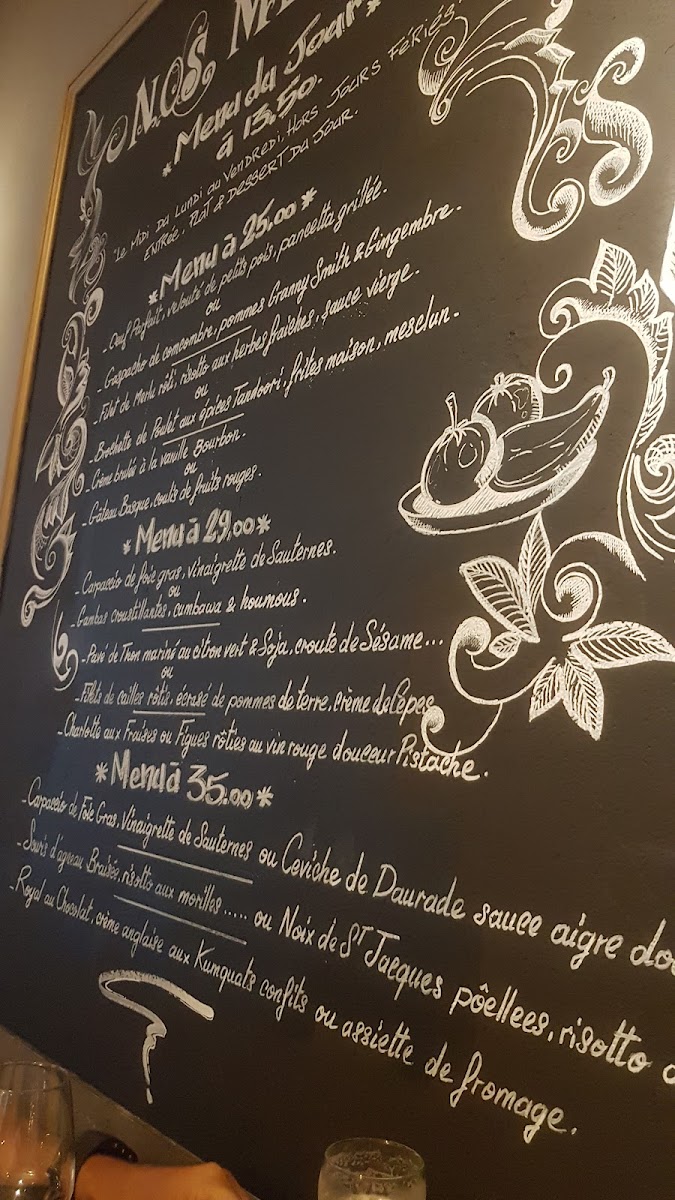 NOS
*Menu du Jour*
à 13,50.
"Le Midi du Lundi au Vendredi, Hors Jours Fériés"
Entrée, Plat & Dessert du Jour.
*Menu à 25.00*
- Oeuf Parfait, velouté de petits pois, pancetta grillée.
ou
- Gaspacho de concombre, pommes Granny Smith & Gingembre.
- Filet de Merlu rôti, risotto aux herbes fraîches, sauce vierge.
ou
- Brochette de Poulet aux épices Tandoori, frites maison, mesclun.
- Crème brulée à la vanille Bourbon.
ou
- Gâteau Basque, coulis de fruits rouges.
*Menu à 29,00*
- Carpaccio de foie gras, vinaigrette de Sauternes.
ou
- Gambas croustillantes, combawa & houmous.
- Pavé de Thon mariné au citron vert & Soja, croute de Sésame...
ou
- Filets de cailles rôtis, écrasé de pommes de terre, crème de Cèpes
- Charlotte aux Fraises ou Figues rôties au vin rouge douceur Pistache.
*Menu à 35.00*
- Carpaccio de Foie Gras, Vinaigrette de Sauternes ou Ceviche de Daurade sauce aigre
- Souris d'agneau Braisée, risotto aux morilles..... ou Noix de St Jacques pôellees, risotto
- Royal au Chocolat, crème anglaise aux Kumquats confits ou assiette de fromage.